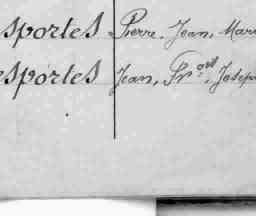 sportes Pierre, Jean, Mari
esportes Jean, Fr.ois, Josep